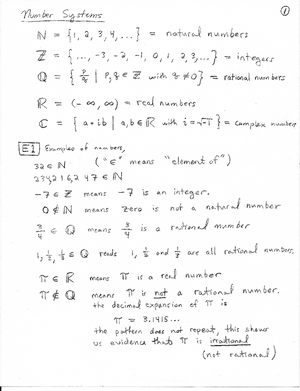 Number Systems ①
ℕ = {1, 2, 3, 4, ...} = natural numbers
ℤ = {..., -3, -2, -1, 0, 1, 2, 3, ...} = integers
ℚ = {p/q | p, q ∈ ℤ with q ≠ 0} = rational numbers
ℝ = (-∞, ∞) = real numbers
ℂ = {a + ib | a, b ∈ ℝ with i = √-1} = complex numbers
E1 Examples of numbers,
32 ∈ ℕ ("∈" means "element of")
∈ ℕ
-7 ∈ ℤ means -7 is an integer.
0 ∉ ℕ means zero is not a natural number
3/4 ∈ ℚ means 3/4 is a rational number
1, 1/2, 1/3 ∈ ℚ reads 1, 1/2 and 1/3 are all rational numbers.
π ∈ ℝ means π is a real number
π ∉ ℚ means π is not a rational number.
the decimal expansion of π is
π = 3.1415...
the pattern does not repeat, this shows
us evidence that π is irrational
(not rational)